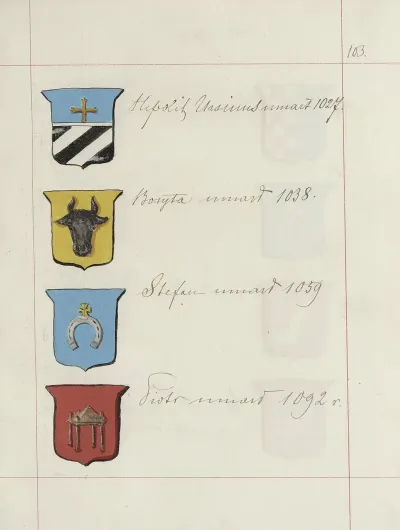 103.
Hipolit Ursinus umarł 1027.
Bossuta umarł 1038.
Stefan umarł 1059
Piotr umarł 1092 r.